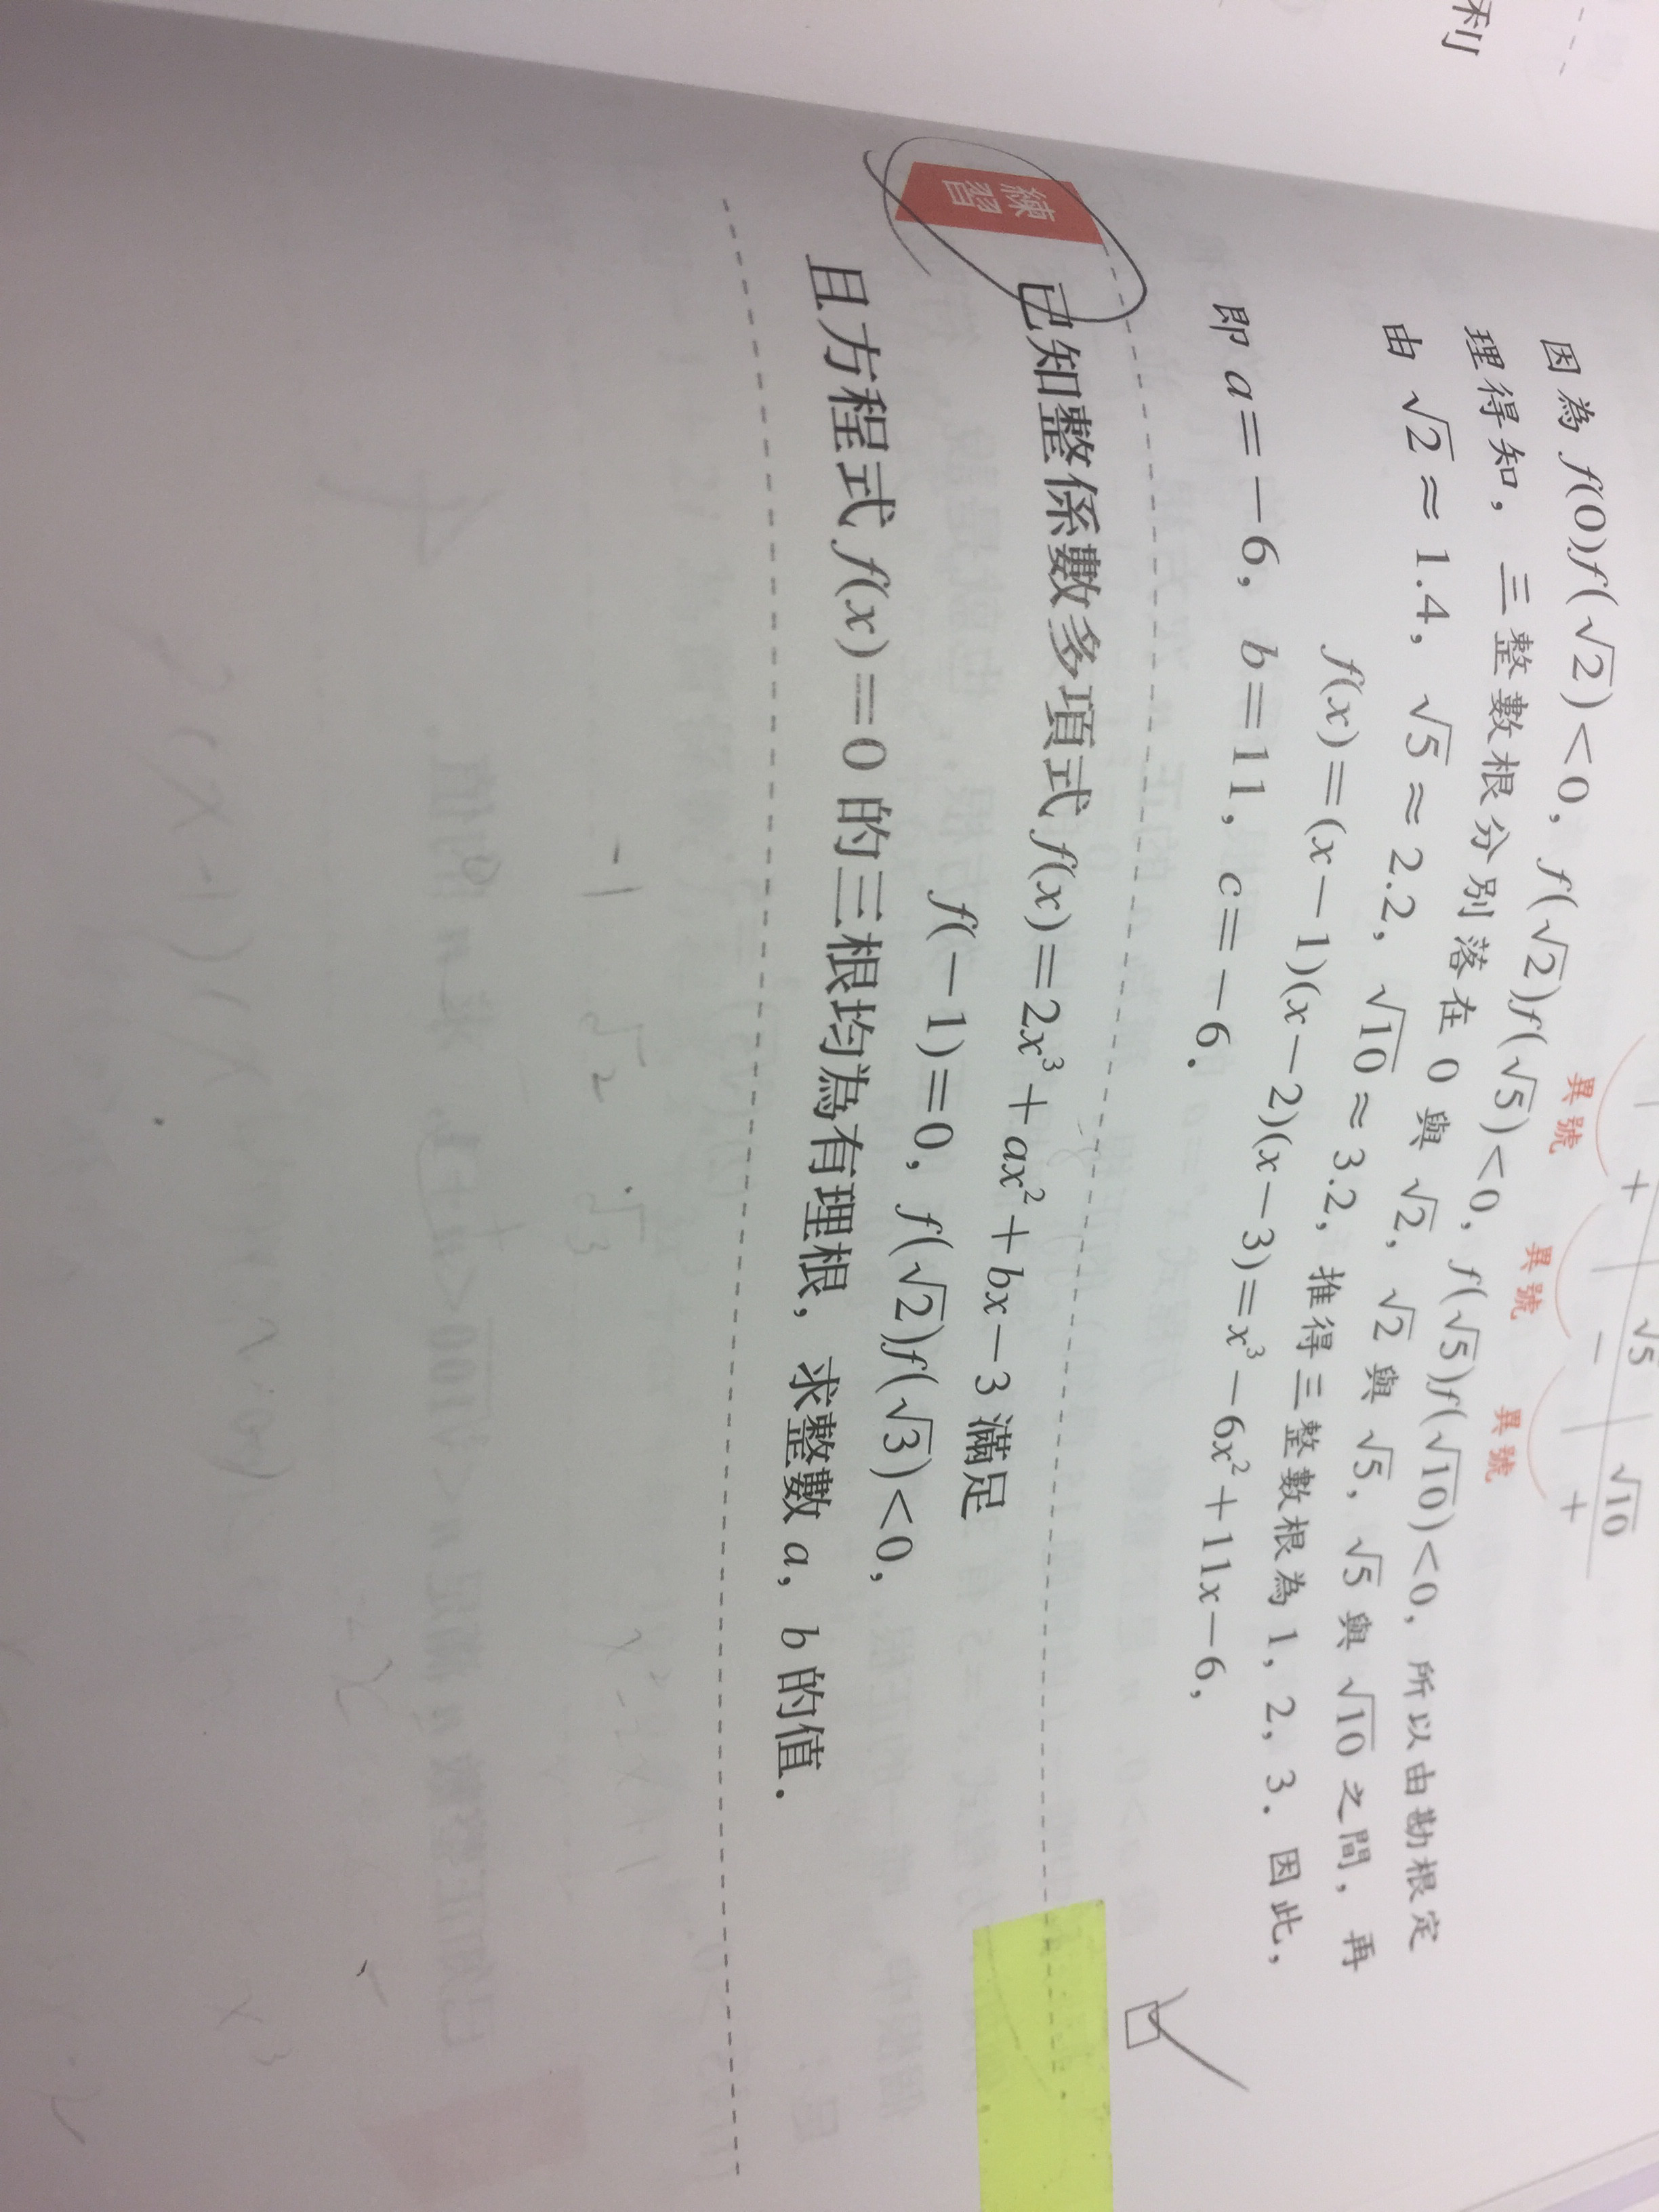 利
√5
√10
+
−
+
異號
異號
異號
因為 f(0)f(√2)<0, f(√2)f(√5)<0, f(√5)f(√10)<0, 所以由勘根定
理得知, 三整數根分別落在 0 與 √2, √2 與 √5, √5 與 √10 之間, 再
由 √2≈1.4, √5≈2.2, √10≈3.2, 推得三整數根為 1, 2, 3. 因此,
f(x)=(x−1)(x−2)(x−3)=x³−6x²+11x−6,
即 a=−6, b=11, c=−6.
練習
已知整係數多項式 f(x)=2x³+ax²+bx−3 滿足
f(−1)=0, f(√2)f(√3)<0,
且方程式 f(x)=0 的三根均為有理根, 求整數 a, b 的值.
-1 √2 √3